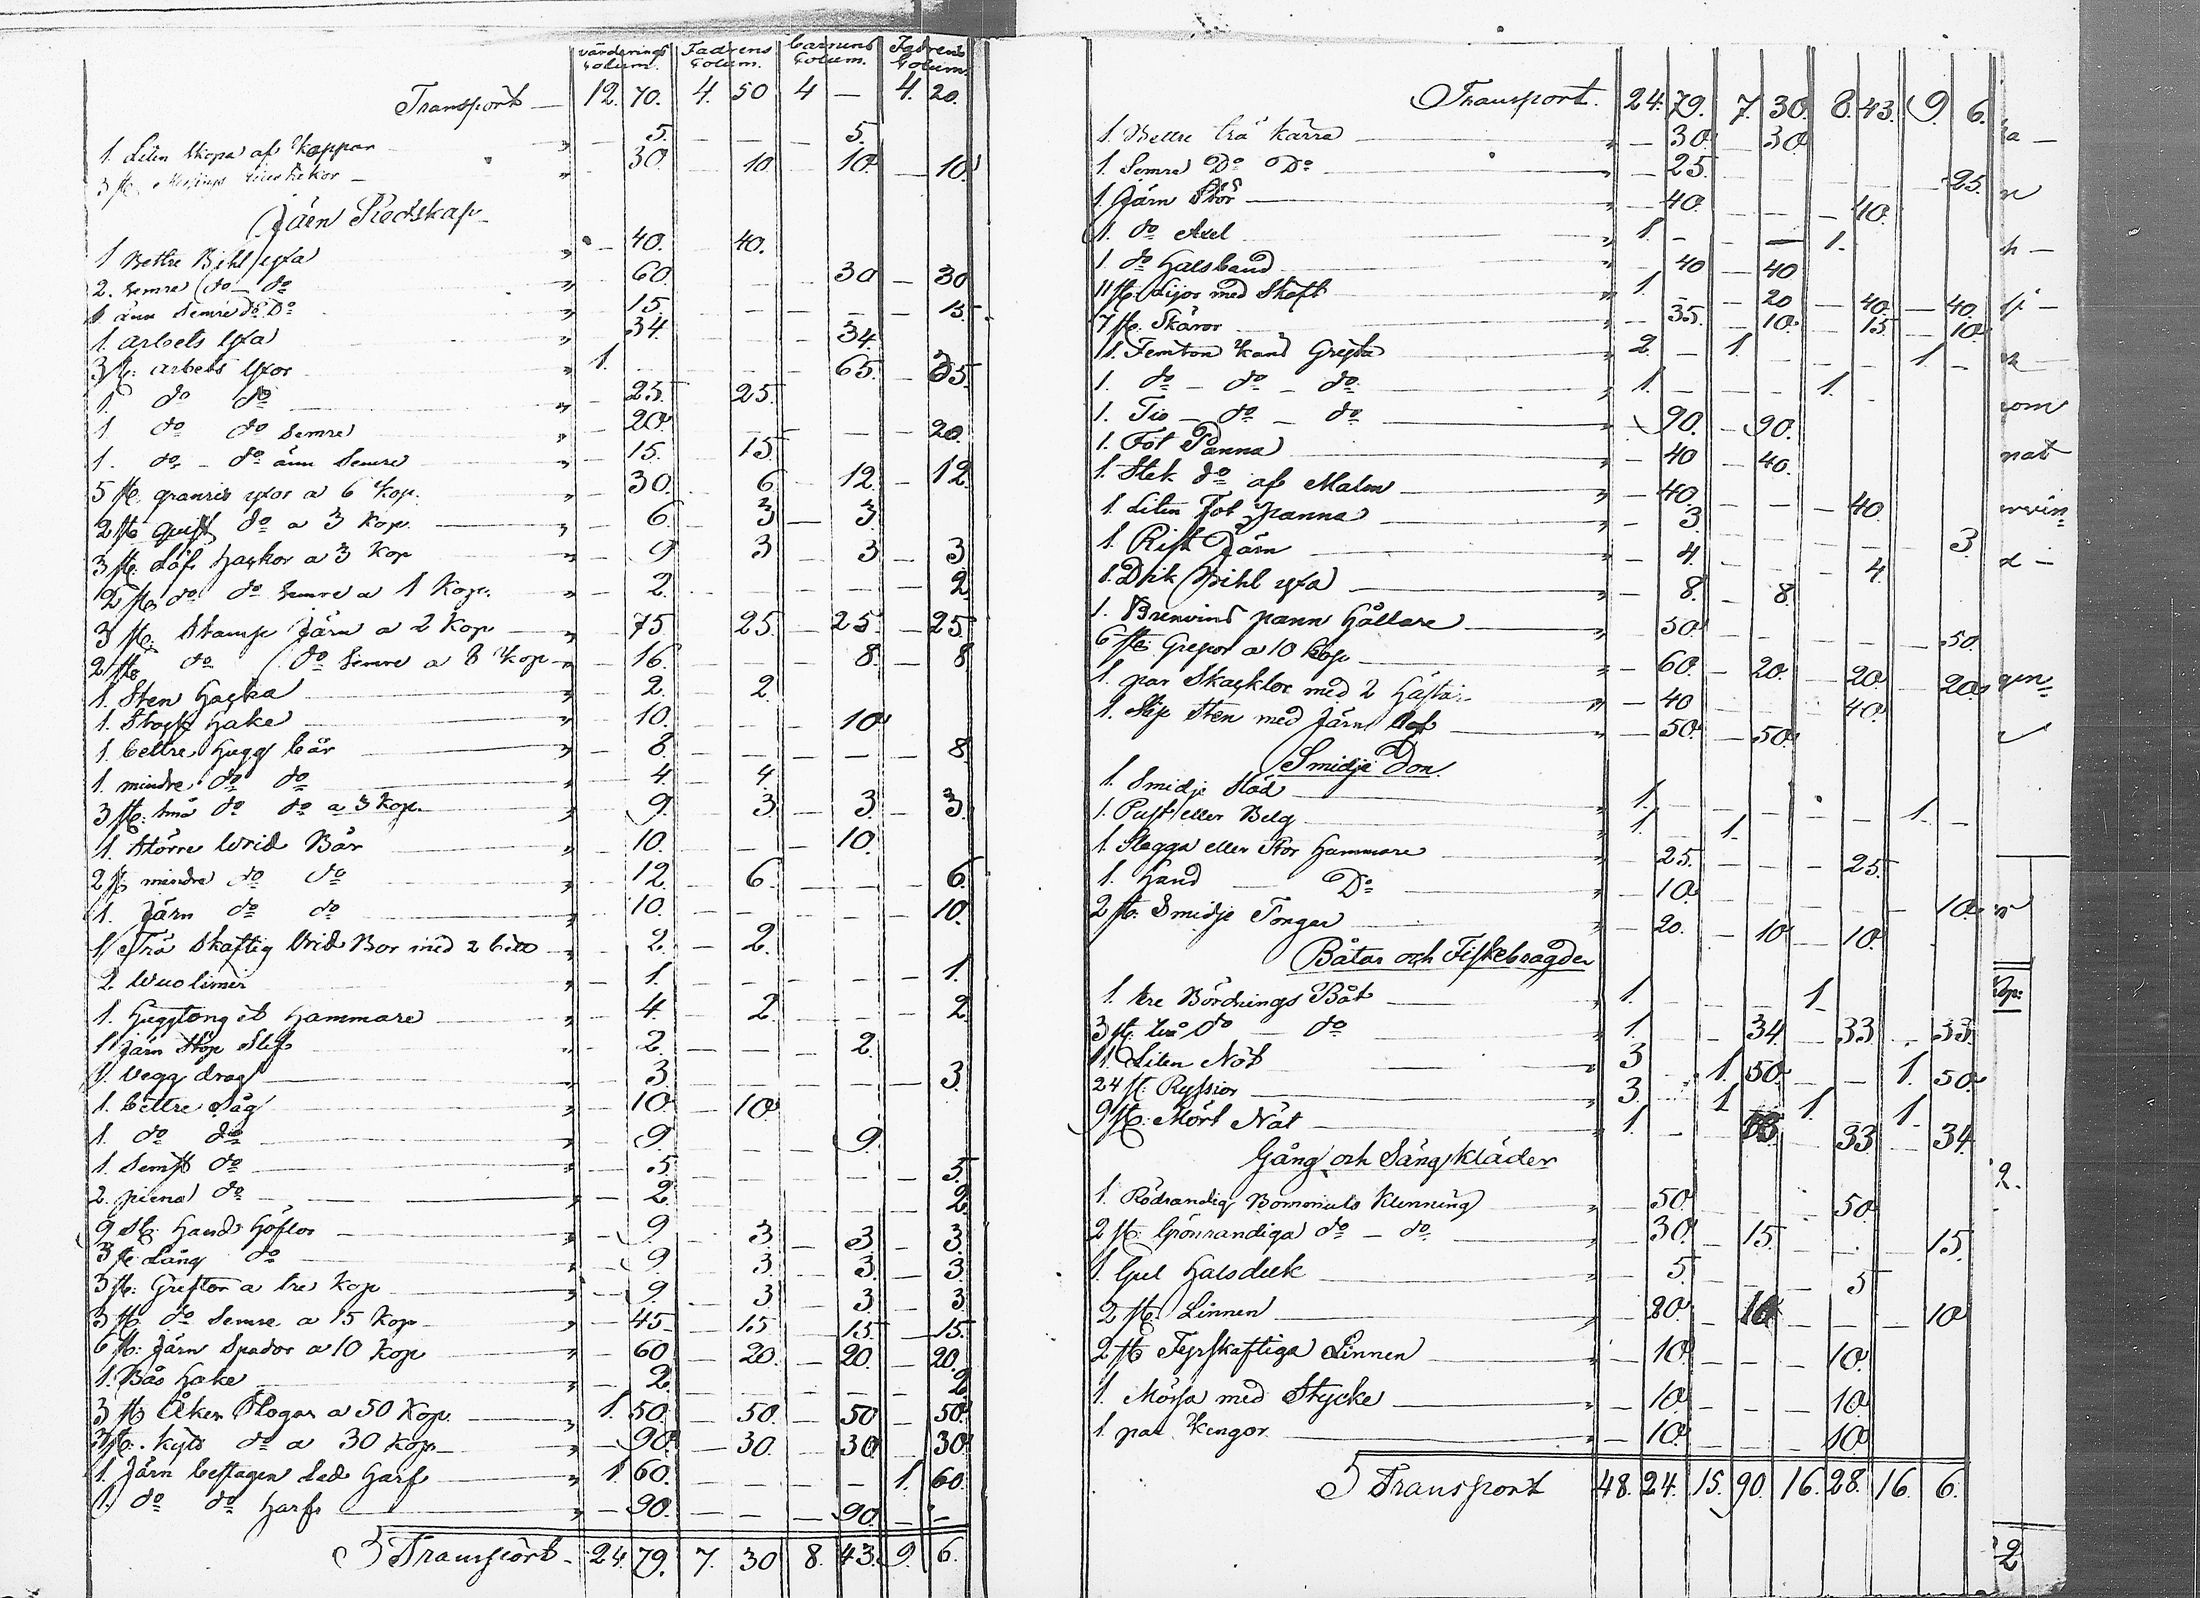 värderings Colum. Fadrens Colum. barnens Colum. Fadrens Colum.
Transport — 12. 70. 4. 50 4 — 4. 20.
1. Liten skopa af Koppar „ — 5. — — — 5.
3 st. Messings „ 30 10 10 10
Järn Redskap
1 Bettre Bihl yxa „ — 40. 40.
2. Semre do do „ — 60 — — — 30 — 30
1 änn Semre do Do „ — 15. — — — — — 15.
1. arbets yxa „ — 34 — — — 34.
3 st. arbets yxor 1. — — — 65. — 35.
1. do do „ — 25. 25.
1 do do Semre „ — 20 — — — — — 20.
1. do — do änn Semre „ — 15. — 15
5 st. granris yxor a 6 Kop. „ — 30. 6 — 12. — 12.
2 st. do a 3 Kop. „ — 6 3 — 3.
3 st. Löf hackor a 3 Kop „ — 9 3 3 — 3
2 st. do do Semre a 1 Kop. „ — 2. — — — — — 2
3 st. Stamp Järn a 2 Kop „ — 75 25 — 25. — 25
2 st. do do Semre a 8 Kop „ — 16. — — — 8. — 8
1. Sten Hacka „ — 2. 2
1. Hake „ — 10. — — — 10
1. bettre hugg bår „ — 8 — — — — — 8
1. mindre do do „ — 4. 4.
3 st. små do do a 3 Kop. „ 9. 3 3. — 3
1. större Wrid Bår „ — 10. — — — 10.
2 st mindre do do „ — 12. — 6 — — — 6.
1. Järn do do „ — 10. — — — — — 10.
1 Trä Skaftig Vrid Bor med 2 bitt „ — 2. — 2.
2. Wuolimir „ — 1. — — — — — 1.
1. Huggtong et Hammare „ — 4 — 2 — — — 2
1 Järn Stöp Slef „ — 2. — — — 2.
1. Vegg drag „ — 3. — — — — — 3.
1. bettre Såg „ — 10 — 10
1. do do „ — 9. — — — 9.
1. Semst do „ — 5 — — — — — 5.
2. piena do „ — 2. 2.
9 st. Hand Höflor „ — 9. 3. — 3. — 3.
3 st. Lång do „ — 9. 3. 3. — 3
3 st. Greftor a tre Kop „ — 9. 3 3. — 3
3 st. do Semre a 15 Kop „ — 45 — 15 15. — 15.
6 st. Järn Spador a 10 Kop „ — 60 — 20. — 20. — 20.
1. Bås hake „ — 2. — — — — — 2
3 st Åker Plogar a 50 Kop. „ 1. 50. — 50. — 50 — 50.
3 st. Kyts do a 30 Kop. „ — 90. — 30. — 30 30.
1. Järn beslagen Led Harf „ 1. 60. — — — — 1. 60.
1. do do harf „ — 90. — — — 90. — —
Transport — 24. 79. 7. 30 8. 43. 9. 6.
Transport. 24. 79. 7. 30. 8. 43. 9. 6.
1. Bettre trä kärra „ — 30. — 30.
1. Semre Do Do „ — 25. — — — — — 25.
1. Järn Stör „ — 40. — — — 40.
1. do Axel „ 1. — — — 1.
1. do Halsband „ — 40 — 40
11 st. Lijor med Skaft „ 1. — — 20 — 40. — 40.
7 st. Skäror „ — 35. — 10. — 15 — 10.
1. Femton Kand Gryta „ 2. — 1. — — — 1. —
1. do — do — do „ 1. — — — 1.
1. Tio — do — do „ 90. — 90.
1. Fot Panna „ — 40 — 40.
1. Stek do af Malm „ — 40. — — — 40.
1 Liten Fot panna „ — 3 — — — — — 3.
1. Rist Järn „ — 4. — — — 4.
1. Bihl yxa „ — 8. — 8.
1. Brenvins pann Hållare „ — 50. — — — — — 50.
6 st. Grepor a 10 Kop „ — 60. — 20. — 20. — 20.
1. par Skacklor med 2 „ — 40 — — — 40.
1. Slip Sten med Järn „ — 50. — 50.
Smidje Don.
1. Smidje Städ „ 1. — — — — — 1. —
1. Pust eller Belg „ 1. — 1.
1. Slegga eller Stor Hammare „ — 25. — — — 25.
1. Hand Do „ — 10. — — — — — 10.
2 st. Smidje Tonger „ — 20. — 10 — 10.
Båtar och Fiskebragder
1. tre Bördnings Båt „ 1. — — — 1.
3 st. två do — do „ 1. — — 34. — 33. — 33.
1. Liten Nöt „ 3 1. 50. — — 1. 50.
24 st. Ryssior „ 3. 1 1. 1.
9 st. Mört Nät „ 1. — 33. 33 — 34.
Gång och Sängkläder
1. Rödrandig Bommuls Klenning „ — 50. 50.
2 st. Grönrandiga do — do „ — 30. — 15. — — — 15.
1. Gul Halsduk „ — 5. — — — 5
2 st. Linnen „ — 20. 10 — — — 10
2 st Fyrskaftiga Linnen „ — 10. — — — 10.
1. Mössa med Stycke „ — 10. — — — 10.
1. par Kengor „ — 10. — — — 10.
Transport 48. 24. 15. 90. 16. 28. 16. 6.